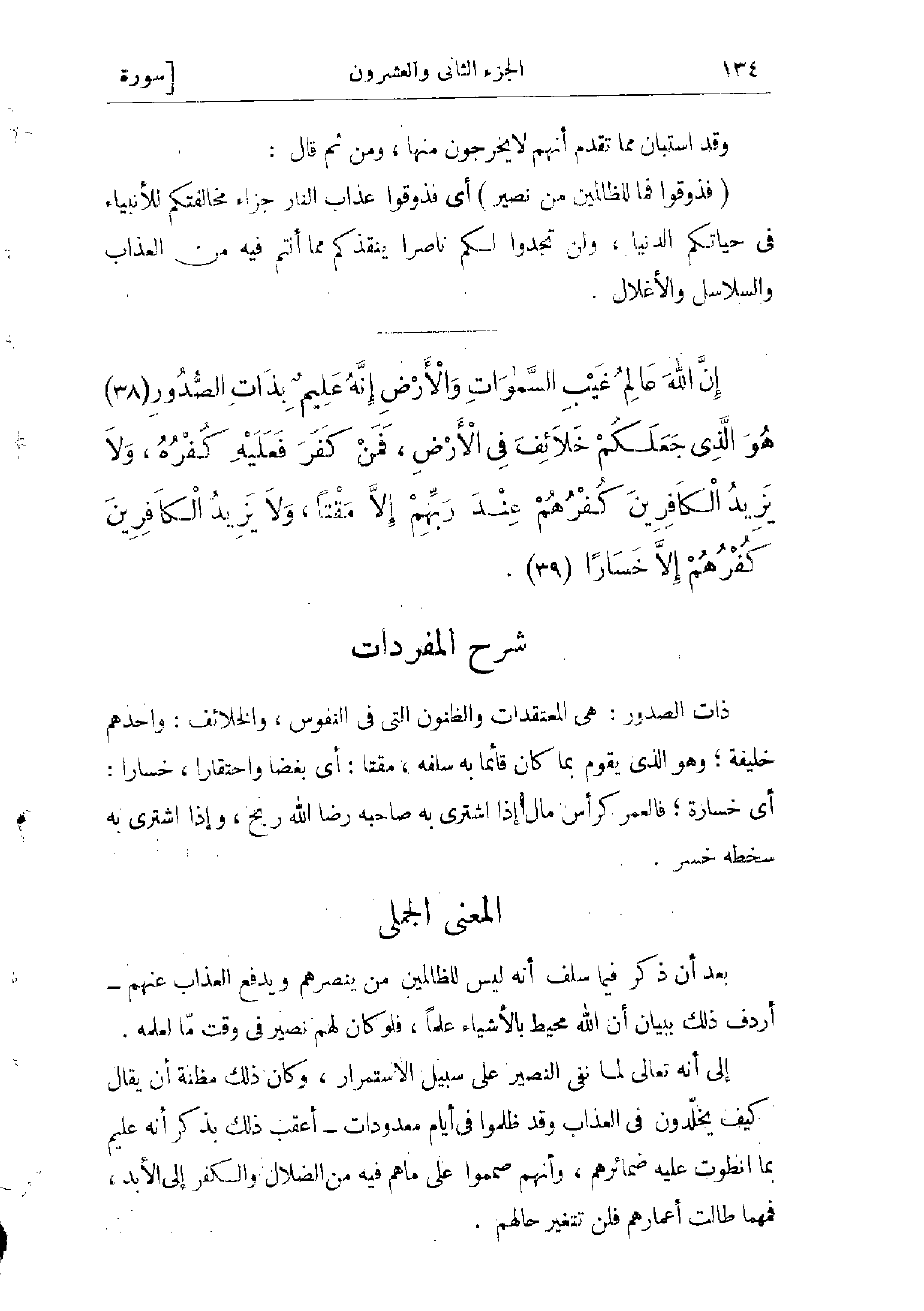 ١٣٤ الجزء الثانى والعشرون [سورة
وقد استبان مما تقدم أنهم لايخرجون منها ، ومن ثم قال :
( فذوقوا فما للظالمين من نصير ) أى فذوقوا عذاب النار جزاء مخالفتكم للأنبياء
فى حياتكم الدنيا ، ولن تجدوا لكم ناصرا ينقذكم مما أنتم فيه من العذاب
والسلاسل والأغلال .
إِنَّ اللهَ عَالِمُ غَيْبِ السَّمٰوَاتِ وَالْأَرْضِ إِنَّهُ عَلِيمٌ بِذَاتِ الصُّدُورِ (٣٨)
هُوَ الَّذِى جَعَلَكُمْ خَلَائِفَ فِى الْأَرْضِ ، فَمَنْ كَفَرَ فَعَلَيْهِ كُفْرُهُ ، وَلَا
يَزِيدُ الْكَافِرِينَ كُفْرُهُمْ عِنْدَ رَبِّهِمْ إِلاَّ مَقْتاً ، وَلَا يَزِيدُ الْكَافِرِينَ
كُفْرُهُمْ إِلاَّ خَسَارًا (٣٩) .
شرح المفردات
ذات الصدور : هى المعتقدات والظنون التى فى النفوس ، والخلائف : واحدهم
خليفة ؛ وهو الذى يقوم بما كان قائما به سلفه ، مقتا : أى بغضا واحتقارا ، خسارا :
أى خسارة ؛ فالعمر كرأس مال إذا اشترى به صاحبه رضا الله ربح ، وإذا اشترى به
سخطه خسر .
المعنى الجملى
بعد أن ذكر فيما سلف أنه ليس للظالمين من ينصرهم ويدفع العذاب عنهم ـ
أردف ذلك ببيان أن الله محيط بالأشياء علماً ، فلوكان لهم نصير فى وقت مّا لعلمه .
إلى أنه تعالى لما نفى النصير على سبيل الاستمرار ، وكان ذلك مظنة أن يقال
كيف يخلّدون فى العذاب وقد ظلموا فى أيام معدودات ـ أعقب ذلك بذكر أنه عليم
بما انطوت عليه ضمائرهم ، وأنهم صمموا على ماهم فيه من الضلال والكفر إلى الأبد ،
فمهما طالت أعمارهم فلن تتغير حالهم .